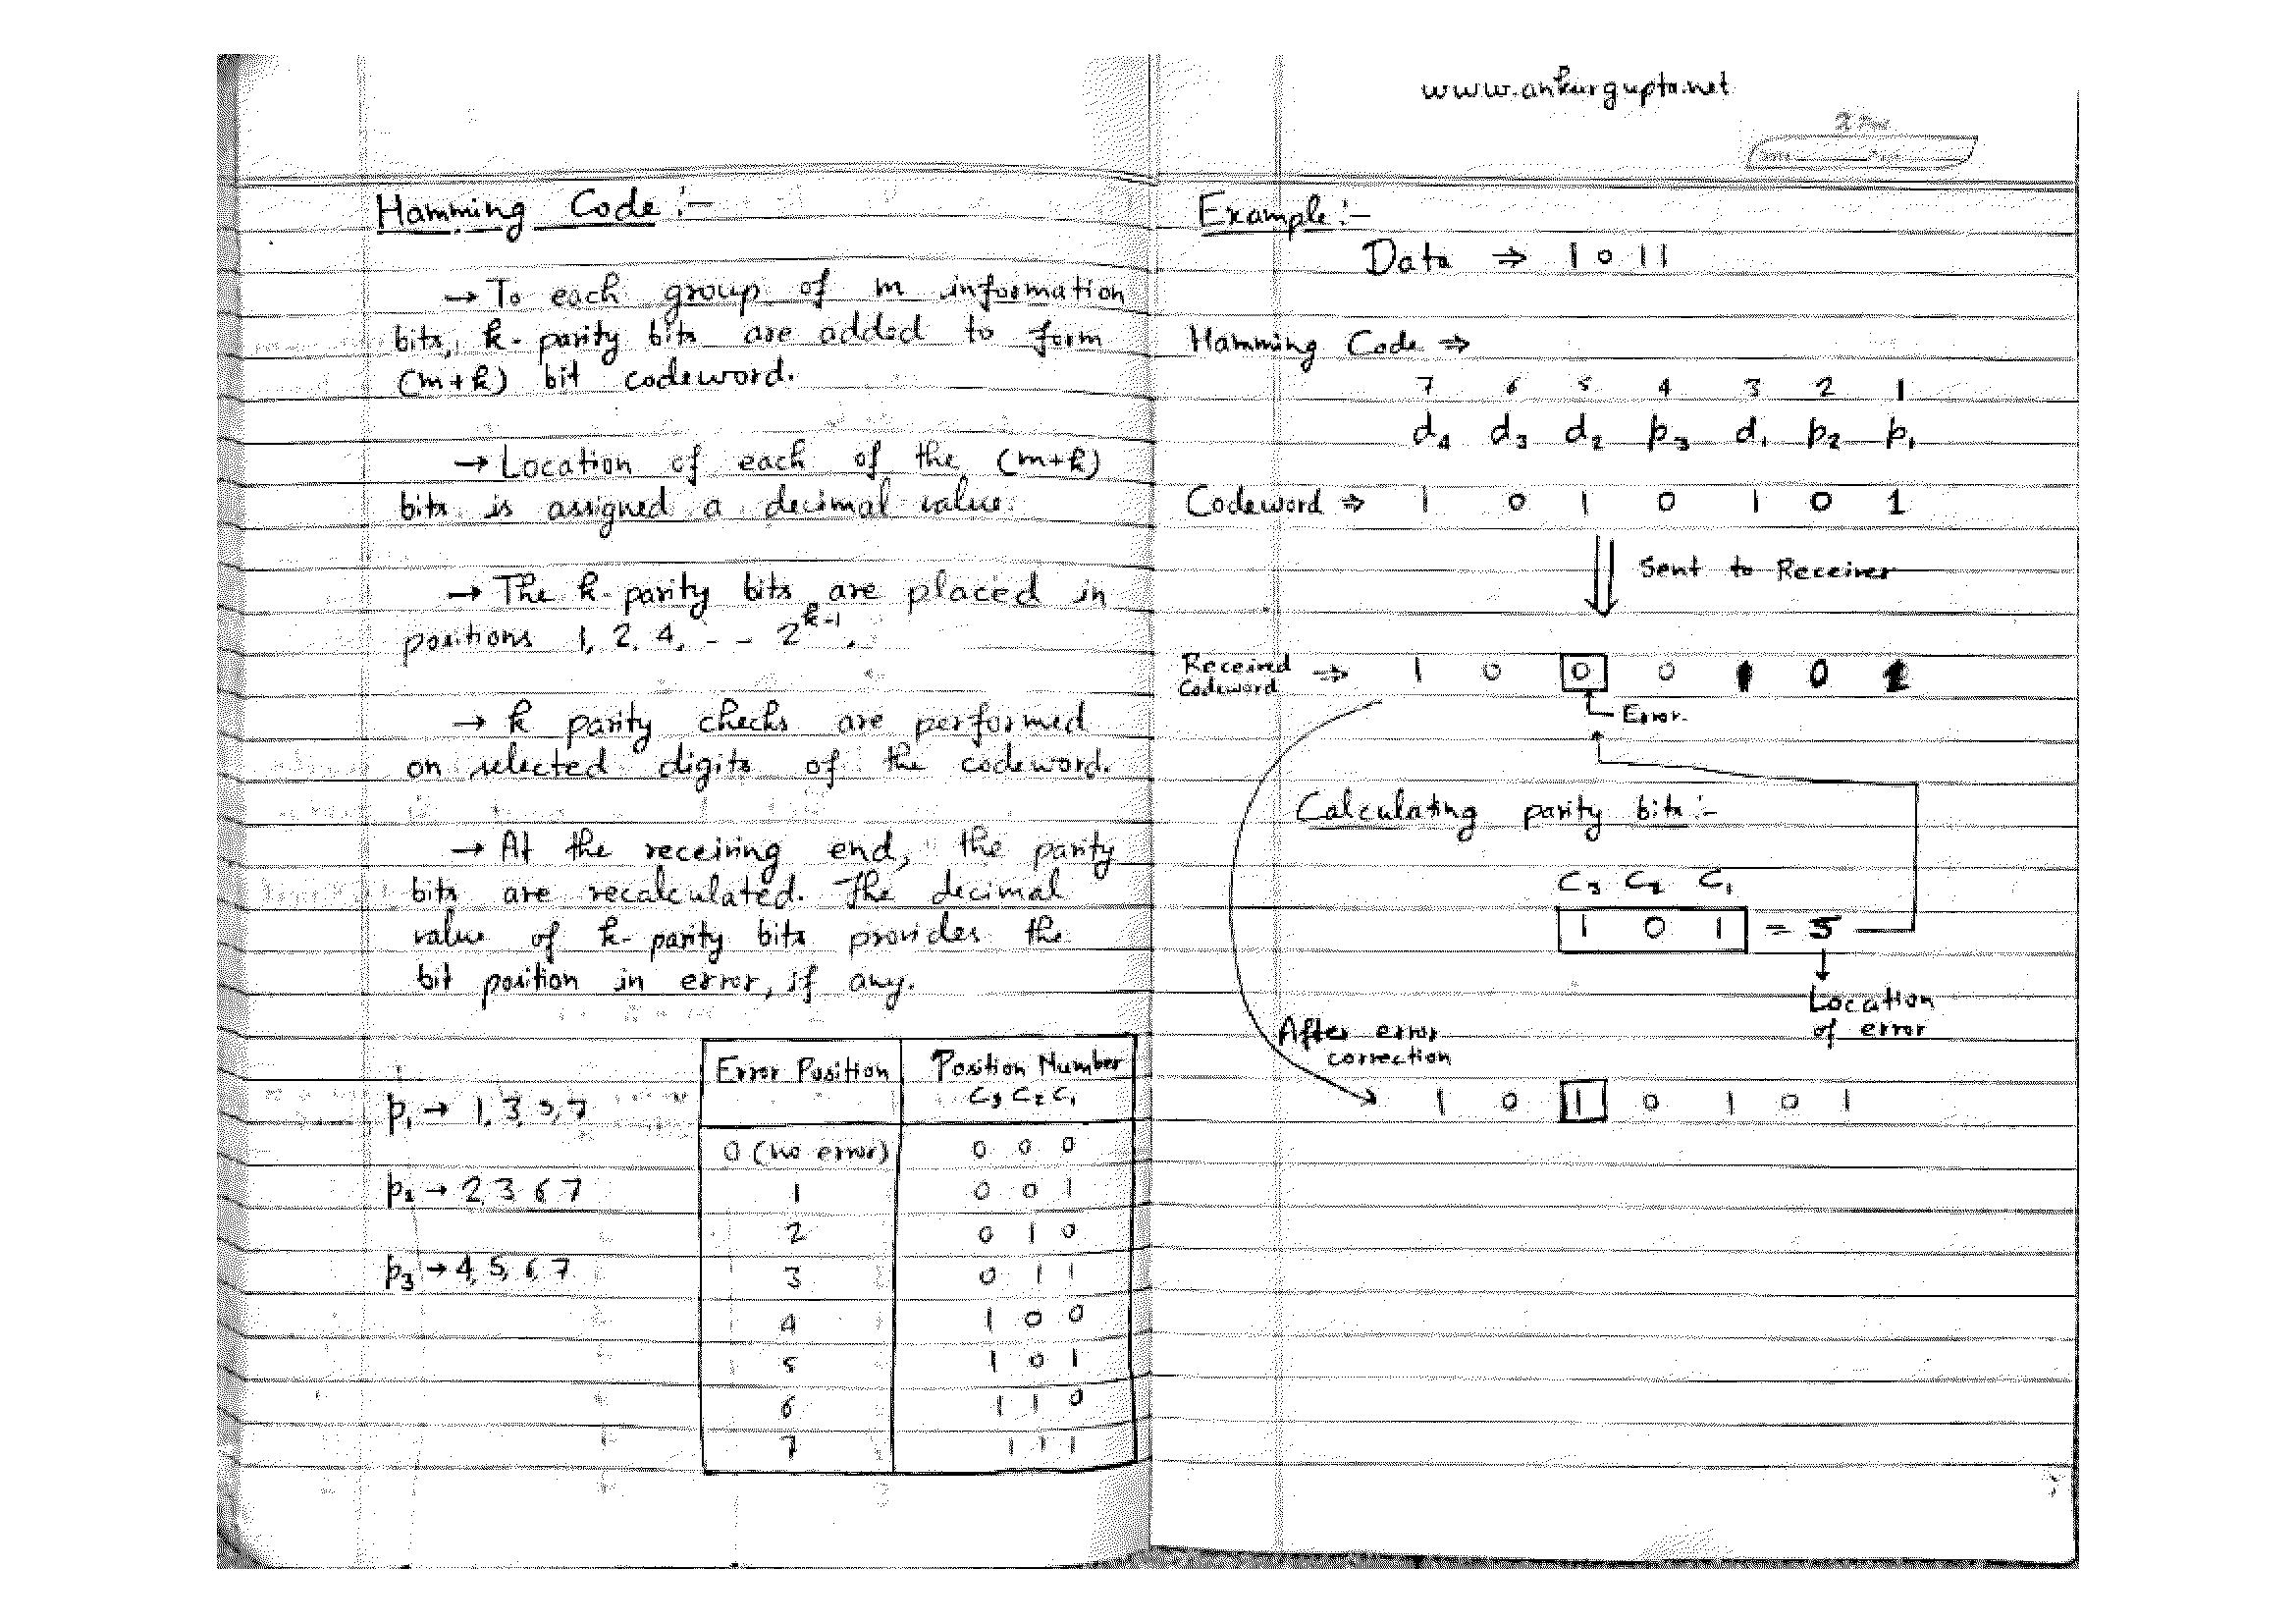 Hamming Code :-
→ To each group of m information
bits, k-parity bits are added to form
(m+k) bit codeword.
→ Location of each of the (m+k)
bits is assigned a decimal value.
→ The k-parity bits are placed in
positions 1, 2, 4, - - 2^{k-1}.
→ k parity checks are performed
on selected digits of the codeword.
→ At the receiving end, the parity
bits are recalculated. The decimal
value of k-parity bits provides the
bit position in error, if any.
p₁ → 1, 3, 5, 7
p₂ → 2 3 6 7
p₃ → 4, 5, 6, 7
Error Position | Position Number
C₃ C₂ C₁
0 (no error) | 0 0 0
1 | 0 0 1
2 | 0 1 0
3 | 0 1 1
4 | 1 0 0
5 | 1 0 1
6 | 1 1 0
7 | 1 1 1
www.ankurgupta.net
Example :-
Data ⇒ 1 0 1 1
Hamming Code ⇒
7 6 5 4 3 2 1
d₄ d₃ d₂ p₃ d₁ p₂ p₁
Codeword ⇒ 1 0 1 0 1 0 1
Sent to Receiver
Received Codeword ⇒ 1 0 0 0 1 0 1
Error.
Calculating parity bits :-
C₃ C₂ C₁
1 0 1 = 5
Location
of error
After error
correction
1 0 1 0 1 0 1